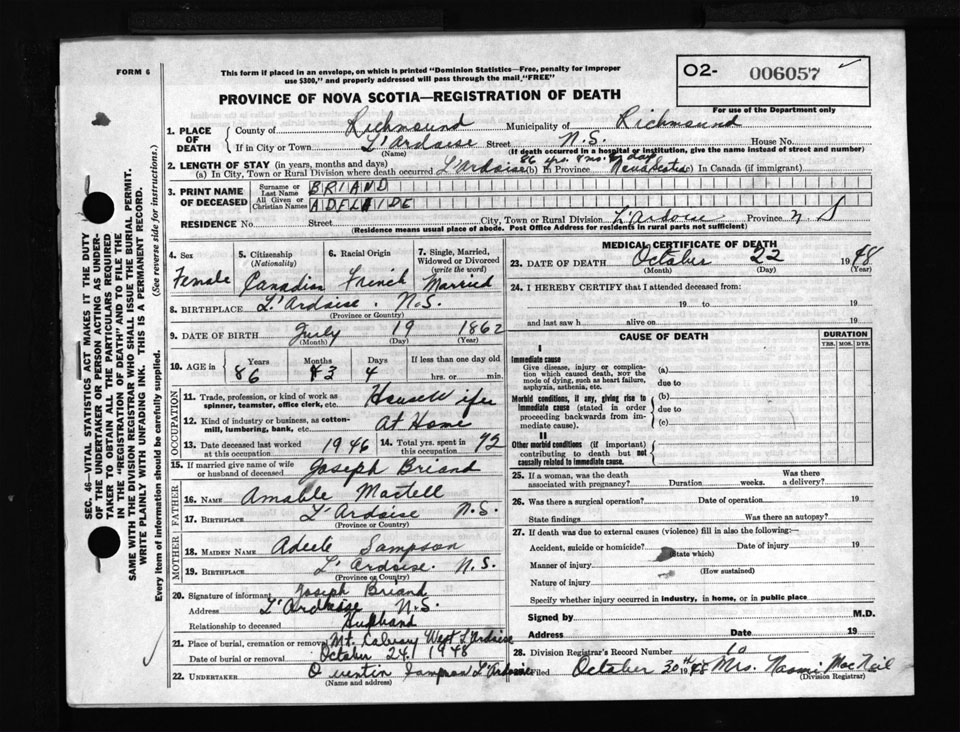 FORM 6
This form if placed in an envelope, on which is printed "Dominion Statistics—Free, penalty for improper
use $300," and properly addressed will pass through the mail "FREE"
02- 006057
For use of the Department only
PROVINCE OF NOVA SCOTIA—REGISTRATION OF DEATH
1. PLACE OF DEATH County of Richmound Municipality of Richmound
If in City or Town L'Ardoise Street N.S. House No.
(Name) (If death occurred in a hospital or institution, give the name instead of street and number)
2. LENGTH OF STAY (in years, months and days) 86 yrs.
(a) In City, Town or Rural Division where death occurred L'Ardoise (b) In Province Nova Scotia (c) In Canada (if immigrant)
3. PRINT NAME OF DECEASED Surname or Last Name BRIAND
All Given or Christian Names ADELAIDE
RESIDENCE No. Street City, Town or Rural Division L'Ardoise Province N S
(Residence means usual place of abode. Post Office Address for residents in rural parts not sufficient)
4. Sex Female
5. Citizenship (Nationality) Canadian
6. Racial Origin French
7. Single, Married, Widowed or Divorced (write the word) Married
8. BIRTHPLACE L'Ardoise. N.S.
(Province or Country)
9. DATE OF BIRTH July 19 1862
(Month) (Day) (Year)
10. AGE in Years 86 Months 3 Days 4 If less than one day old hrs. or min.
OCCUPATION
11. Trade, profession, or kind of work as spinner, teamster, office clerk, etc. House Wifee
12. Kind of industry or business, as cotton-mill, lumbering, bank, etc. At Home
13. Date deceased last worked at this occupation 1946 14. Total yrs. spent in this occupation 72
15. If married give name of wife or husband of deceased Joseph Briand
FATHER
16. NAME Amable Martell
17. BIRTHPLACE L'Ardoise N.S.
(Province or Country)
MOTHER
18. MAIDEN NAME Adele Sampson
19. BIRTHPLACE L'Ardoise. N.S.
(Province or Country)
20. Signature of informant Joseph Briand
Address L'Ardoise N.S.
Relationship to deceased Husband
21. Place of burial, cremation or removal Mt. Calvary West L'Ardoise
Date of burial or removal October 24 1948
22. UNDERTAKER Quentin Sampson L'Ardoise
(Name and address)
MEDICAL CERTIFICATE OF DEATH
23. DATE OF DEATH October 22 1948
(Month) (Day) (Year)
24. I HEREBY CERTIFY that I attended deceased from:
19 to 19
and last saw h alive on 19
CAUSE OF DEATH DURATION
YRS. MOS. DYS.
I
Immediate cause
Give disease, injury or complication which caused death, NOT the mode of dying, such as heart failure, asphyxia, asthenia, etc.
(a)
due to
Morbid conditions, if any, giving rise to immediate cause (stated in order proceeding backwards from immediate cause).
(b)
due to
(c)
II
Other morbid conditions (if important) contributing to death but not causally related to immediate cause.
25. If a woman, was the death associated with pregnancy? Duration weeks. Was there a delivery?
26. Was there a surgical operation? Date of operation 19
State findings Was there an autopsy?
27. If death was due to external causes (violence) fill in also the following:—
Accident, suicide or homicide? Date of injury 19
(State which)
Manner of injury
(How sustained)
Nature of injury
Specify whether injury occurred in industry, in home, or in public place
Signed by M.D.
Address Date 19
28. Division Registrar's Record Number 10
Filed October 30th 1948 Mrs. Naomi MacNeil
(Division Registrar)
SEC. 46—VITAL STATISTICS ACT MAKES IT THE DUTY
OF THE UNDERTAKER OR PERSON ACTING AS UNDER-
TAKER TO OBTAIN ALL THE PARTICULARS REQUIRED
IN THE "REGISTRATION OF DEATH" AND TO FILE THE
SAME WITH THE DIVISION REGISTRAR WHO SHALL ISSUE THE BURIAL PERMIT.
WRITE PLAINLY WITH UNFADING INK. THIS IS A PERMANENT RECORD.
Every item of information should be carefully supplied. (See reverse side for instructions.)